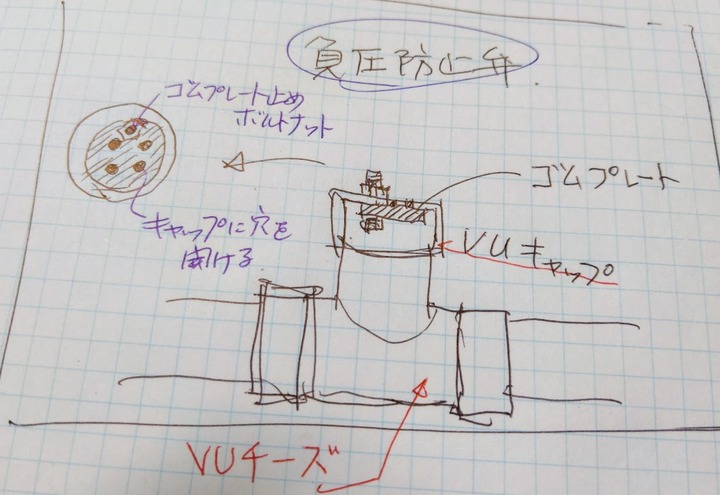 負圧防止弁
ゴムプレート止め
ボルトナット
ゴムプレート
キャップに穴を
開ける
VUキャップ
VUチーズ